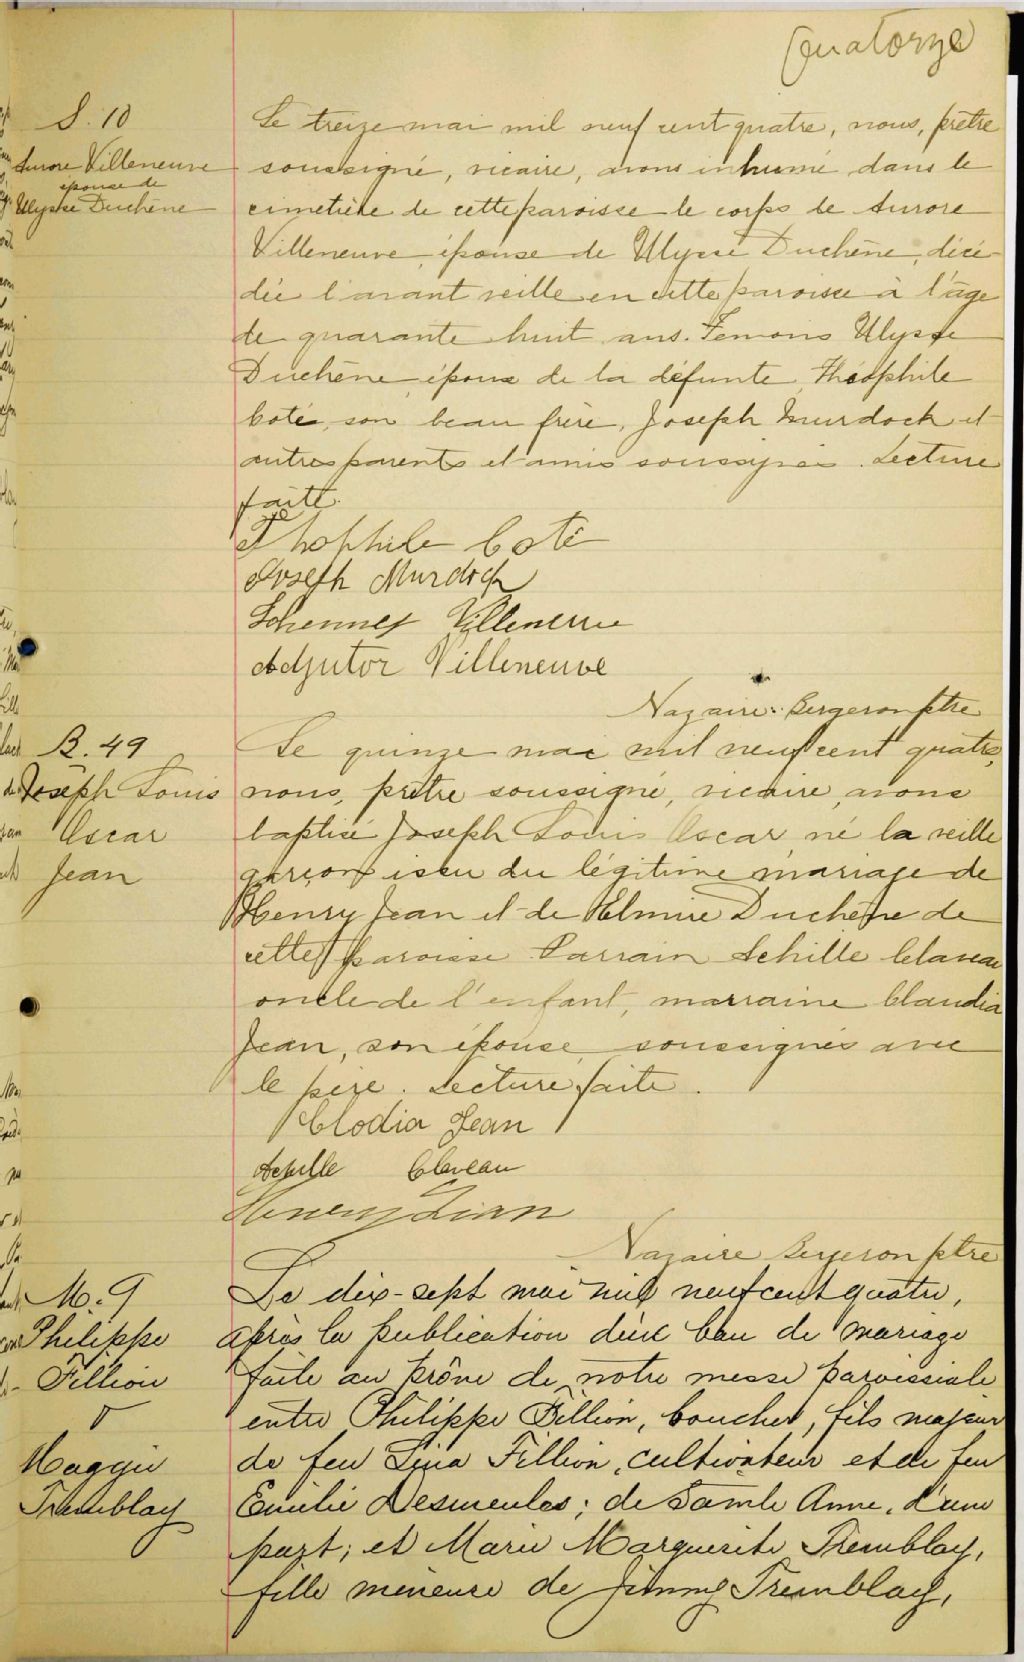 Quatorze
S. 10
Aurore Villeneuve
épouse de
Ulysse Duchêne
Le treize mai mil neuf cent quatre, nous, prêtre
soussigné, vicaire, avons inhumé dans le
cimetière de cette paroisse le corps de Aurore
Villeneuve, épouse de Ulysse Duchêne, décé-
dée l'avant veille en cette paroisse à l'âge
de quarante huit ans. Temoins Ulysse
Duchêne, époux de la défunte, Théophile
Coté, son beau frère, Joseph Murdock et
autres parents et amis soussignés. Lecture
faite.
Thophile Coté
Joseph Murdock
Villeneuve
Adjutor Villeneuve
Nazaire Bergeron ptre
B. 49
Joseph Louis
Oscar
Jean
Le quinze mai mil neuf cent quatre,
nous, prêtre soussigné, vicaire, avons
baptisé Joseph Louis Oscar, né la veille
garçon issu du légitime mariage de
Henry Jean et de Elmire Duchêne de
cette paroisse. Parrain Achille Claveau
oncle de l'enfant, marraine Claudia
Jean, son épouse, soussignés avec
le père. Lecture faite.
Clodia Jean
Achille Claveau
Henry Jean
Nazaire Bergeron ptre
M. 9
Philippe
Fillion
&
Maggie
Tremblay
Le dix-sept mai mil neuf cent quatre,
après la publication d'un ban de mariage
faite au prône de notre messe paroissiale
entre Philippe Fillion, boucher, fils majeur
de feu Fillion, cultivateur et de feu
Emilie Desmeules; de Sainte Anne, d'une
part; et Marie Marguerite Tremblay,
fille mineure de Jimmy Tremblay,